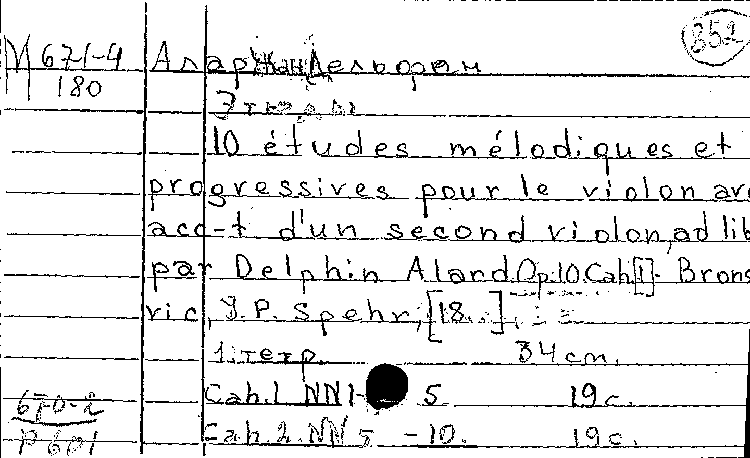 852
М 671-4
180
Алар Жан Дельфен
Этюды
10 études mélodiques et
progressives pour le violon ave
acc-t d'un second violon, ad lib
par Delphin Alard. Op. 10. Cah. [1]. Brons
vic, J. P. Spehr, [18..],
1 тетр. 34 cm.
Cah. 1 NN 1- 5 19 c.
Cah. 2. NN 5 -10. 19 c.
670-2
P 601